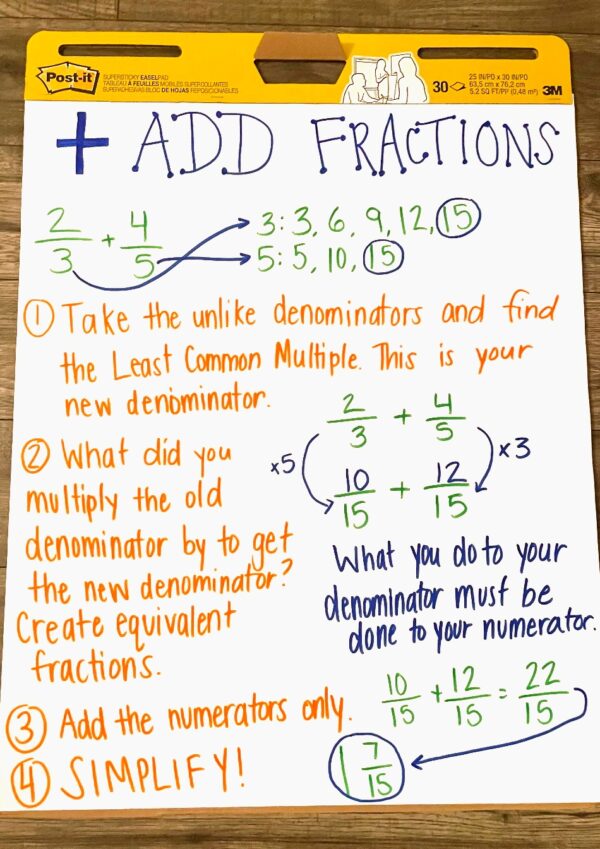 Post-it
SUPERSTICKY EASELPAD
TABLEAU À FEUILLES MOBILES SUPERCOLLANTES
SUPERADHESIVAS BLOC DE HOJAS REPOSICIONABLES
30
25 IN/PO x 30 IN/PO
63,5 cm x 76,2 cm
5.2 SQ FT/PP (0,48 m²)
3M
+ ADD FRACTIONS
2/3 + 4/5
3: 3, 6, 9, 12, 15
5: 5, 10, 15
① Take the unlike denominators and find
the Least Common Multiple. This is your
new denominator.
② What did you
multiply the old
denominator by to get
the new denominator?
Create equivalent
fractions.
2/3 + 4/5
x5
x3
10/15 + 12/15
What you do to your
denominator must be
done to your numerator.
③ Add the numerators only.
10/15 + 12/15 = 22/15
④ SIMPLIFY!
1 7/15